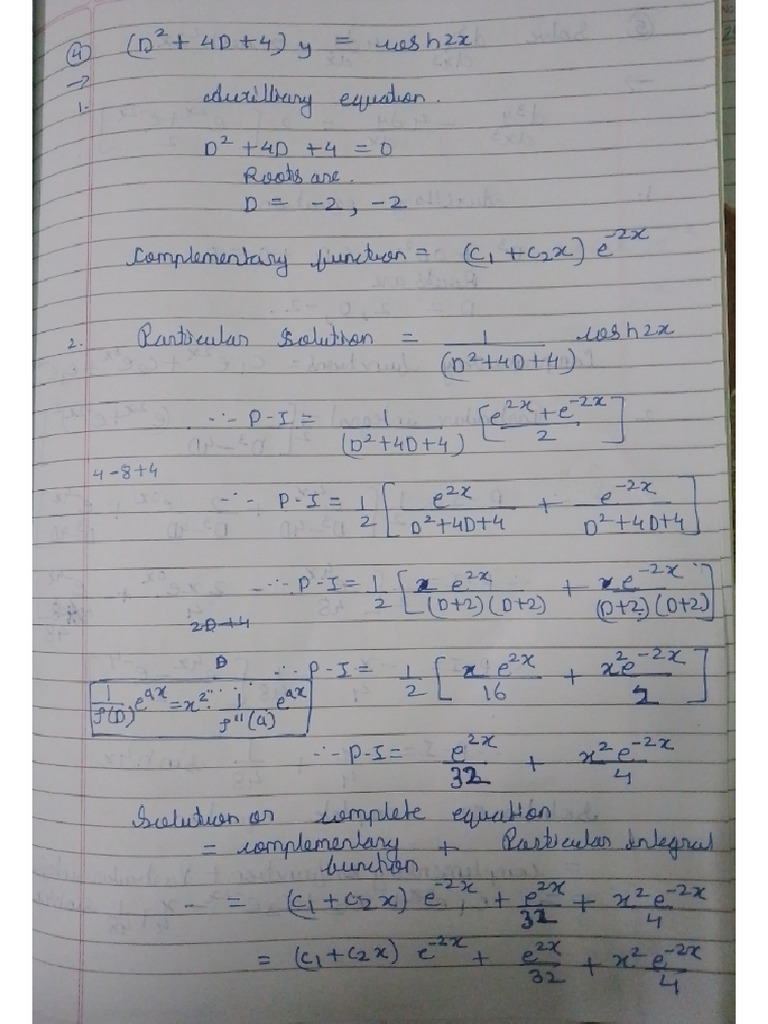 ④ (D² + 4D + 4) y = cosh2x
→
1. Auxilliary equation.
D² + 4D + 4 = 0
Roots are.
D = -2, -2
Complementary function = (C₁ + C₂x) e⁻²ˣ
2. Particular Solution = 1/(D²+4D+4) cosh2x
∴ P-I = 1/(D²+4D+4) [(e²ˣ + e⁻²ˣ)/2]
4-8+4
∴ P-I = 1/2 [e²ˣ/(D²+4D+4) + e⁻²ˣ/(D²+4D+4)]
∴ P-I = 1/2 [x e²ˣ/((D+2)(D+2)) + x e⁻²ˣ/((D+2)(D+2))]
2D+4
∴ P-I = 1/2 [x e²ˣ/16 + x²e⁻²ˣ/2]
1/f(D) eᵃˣ = x² · 1/f''(a) eᵃˣ
∴ P-I = e²ˣ/32 + x²e⁻²ˣ/4
Solution or complete equation
= complementary function + Particular Integral
= (C₁ + C₂x) e⁻²ˣ + e²ˣ/32 + x²e⁻²ˣ/4
= (C₁ + C₂x) e⁻²ˣ + e²ˣ/32 + x² e⁻²ˣ/4